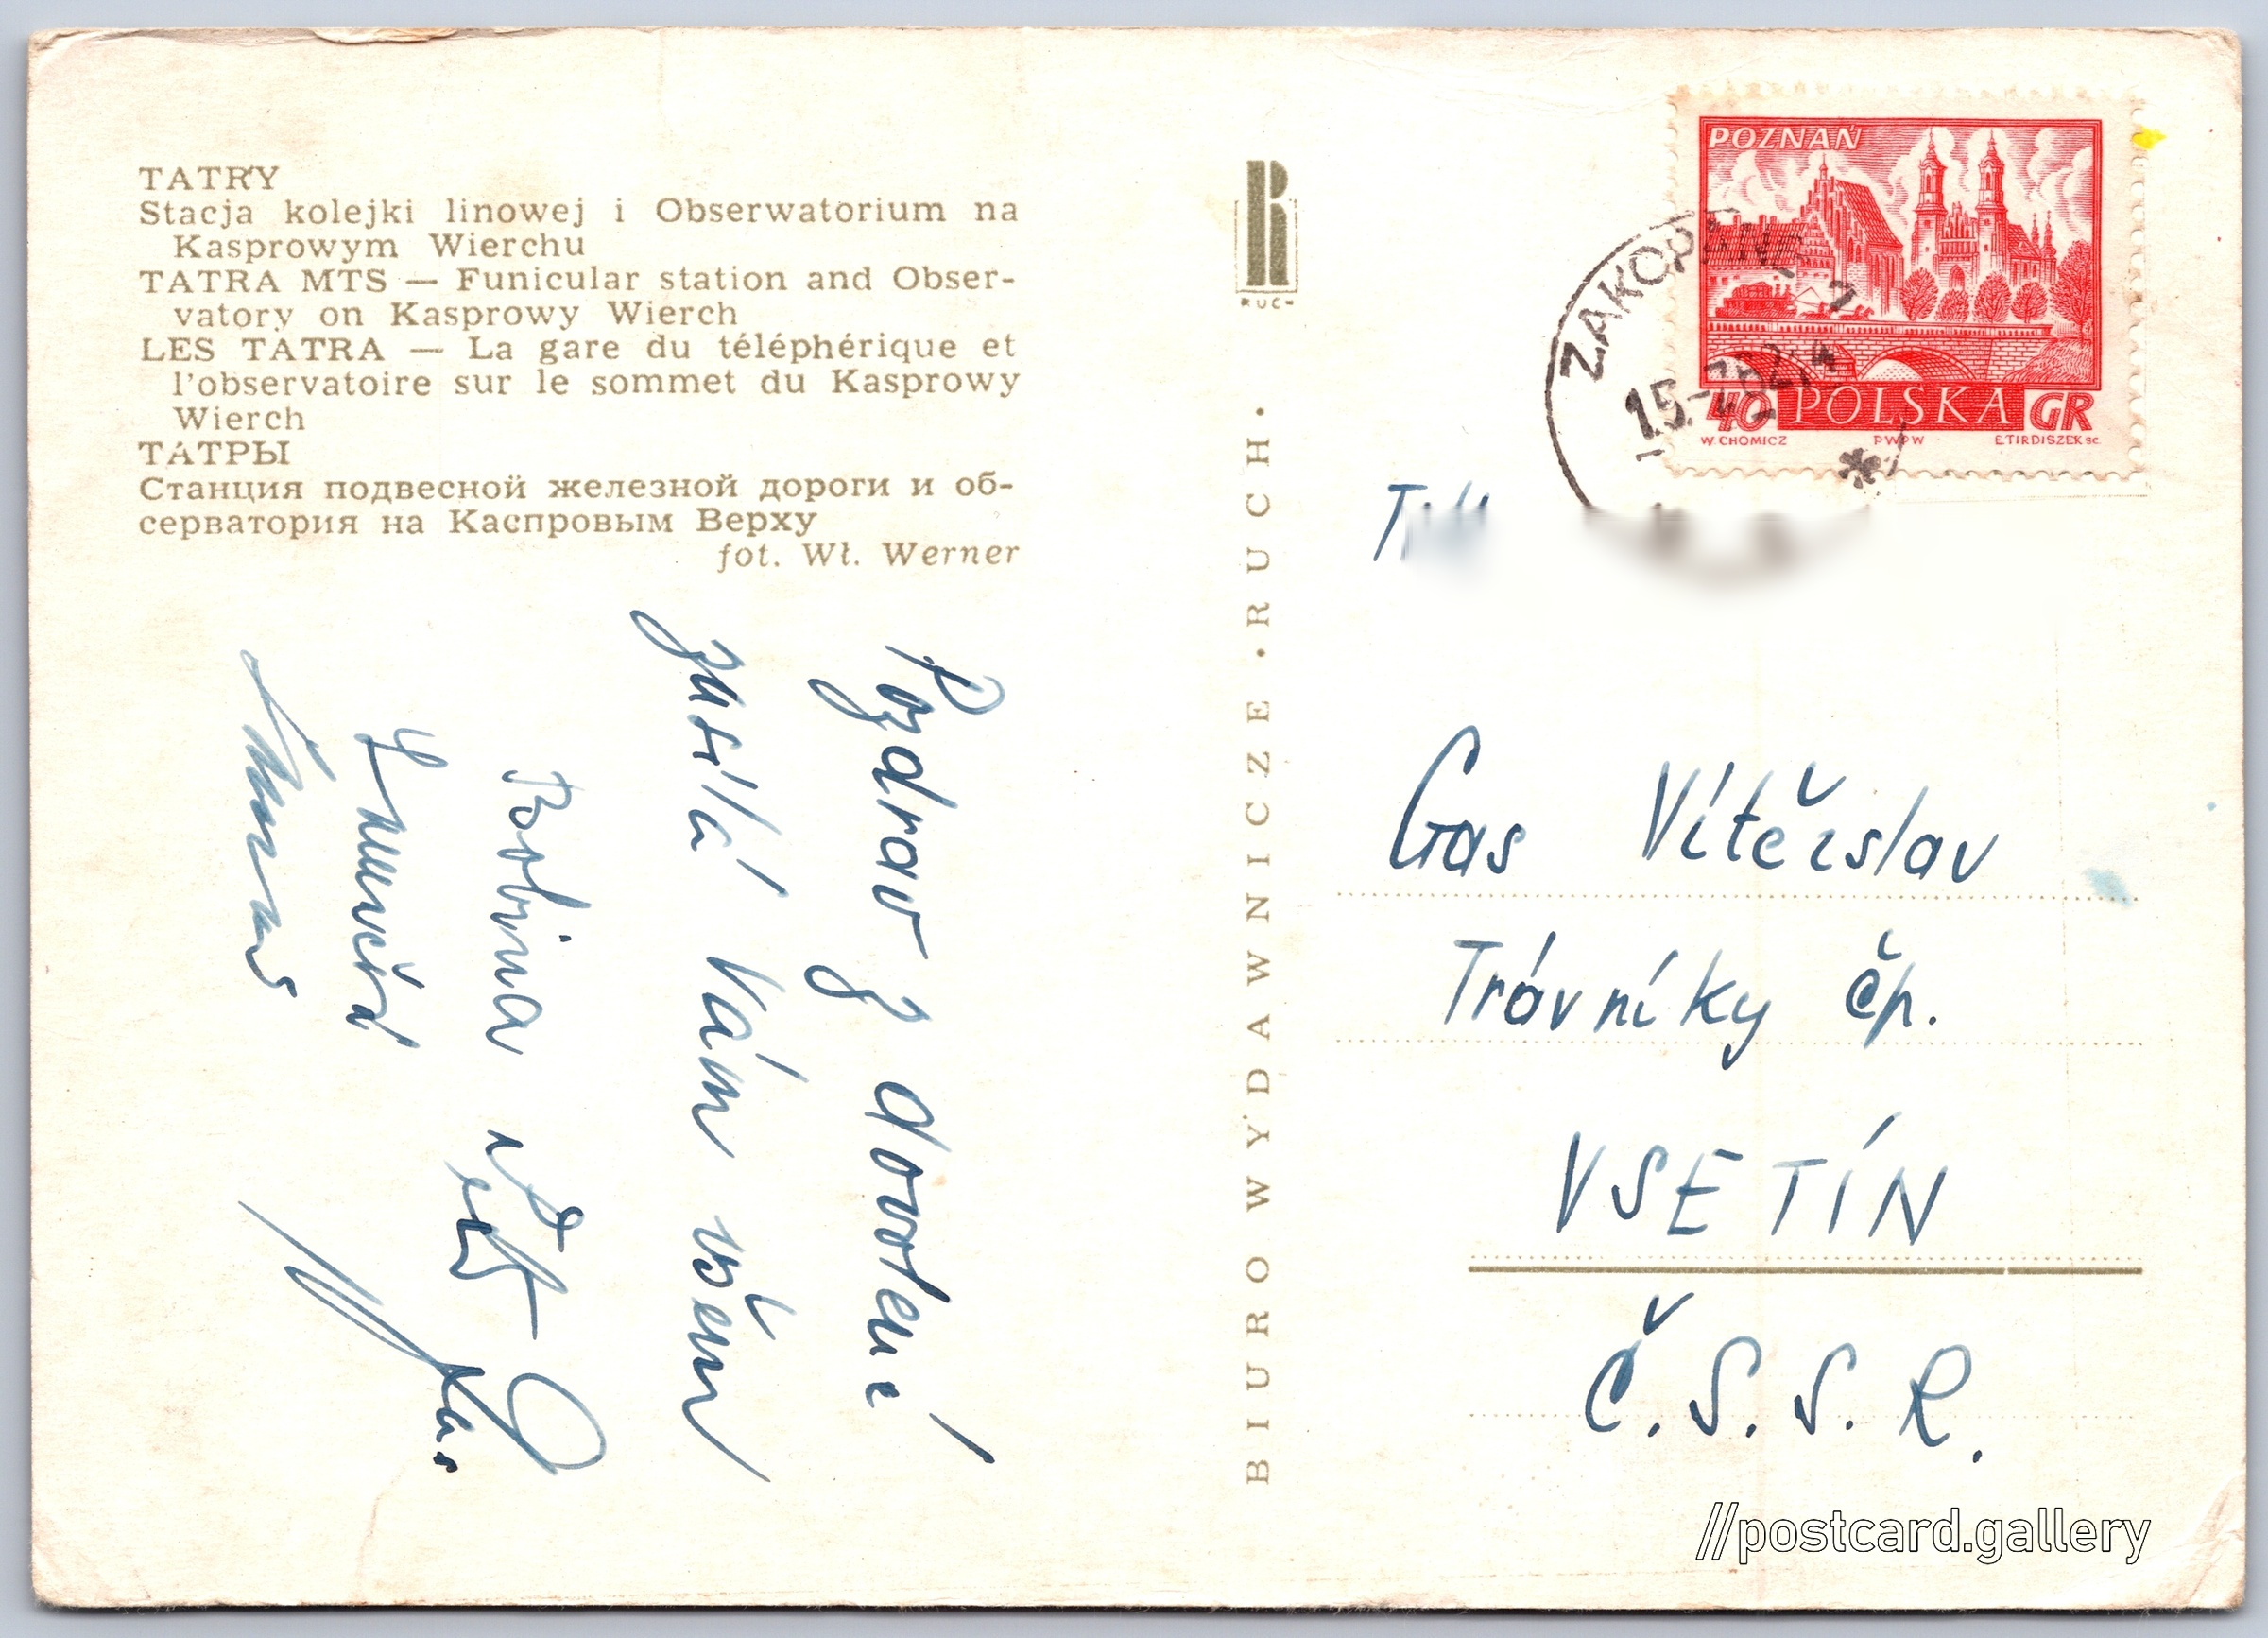 TATRY
Stacja kolejki linowej i Obserwatorium na
Kasprowym Wierchu
TATRA MTS — Funicular station and Obser-
vatory on Kasprowy Wierch
LES TATRA — La gare du téléphérique et
l'observatoire sur le sommet du Kasprowy
Wierch
ТАТРЫ
Станция подвесной железной дороги и об-
серватория на Каспровым Верху
fot. Wł. Werner
Pozdrav z dovolené
Vám všem
RUCH
BIURO WYDAWNICZE • RUCH •
POZNAŃ
40 POLSKA GR
W. CHOMICZ PWPW E.TIRDISZEK sc.
ZAKOPANE
Gas Vítězslav
Trávníky čp.
VSETÍN
Č.S.S.R.
//postcard.gallery